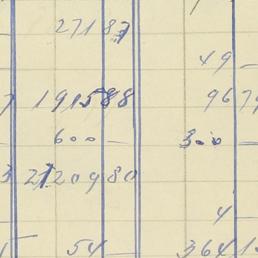 27187
49 —
191588 967
600 — 300 —
2120980
4 —
54 — 3641